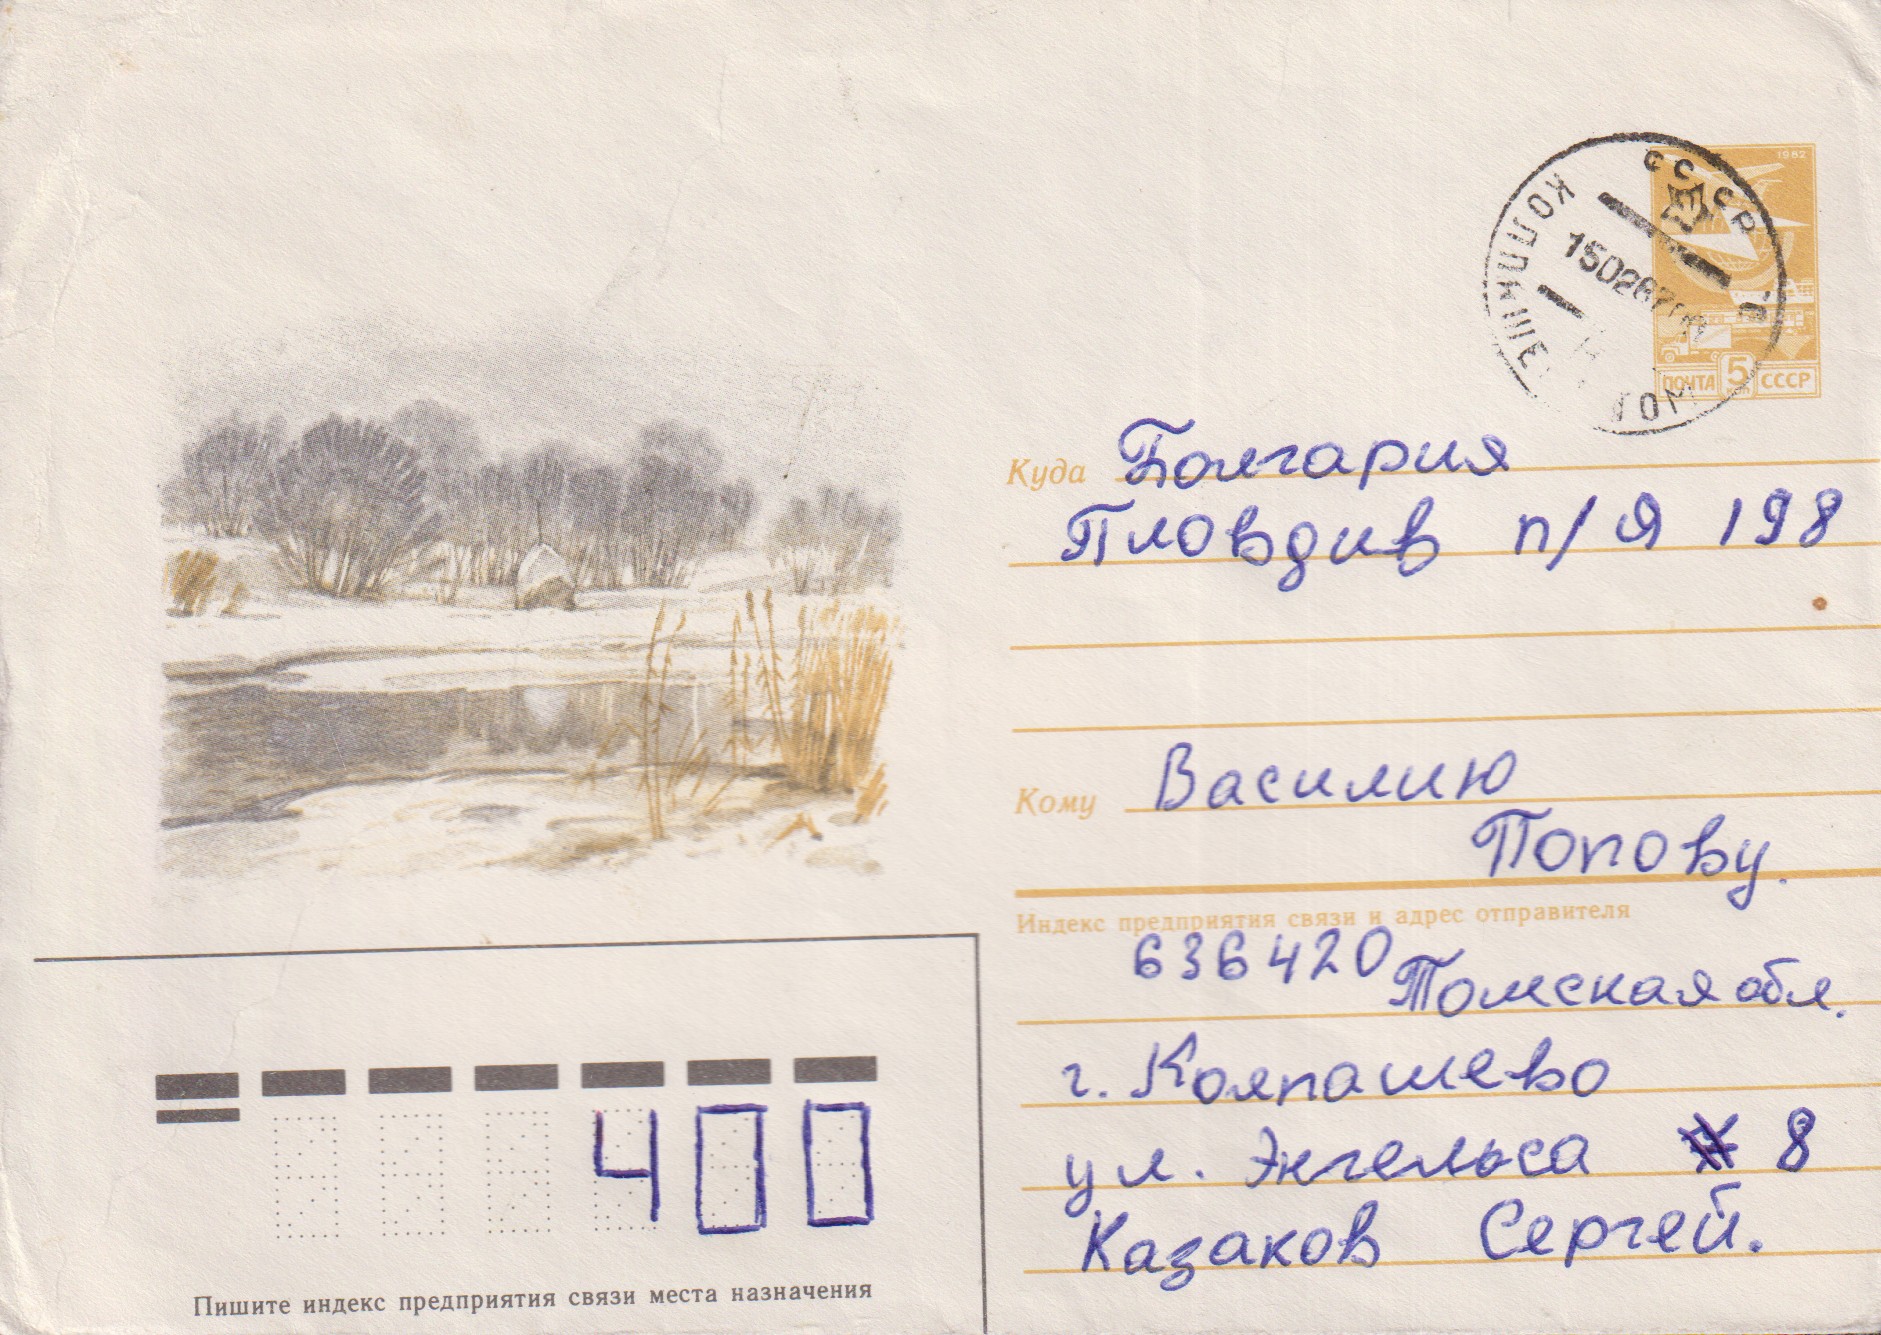 1982
СССР
КОЛПАШЕ
ТОМ
150287
ПОЧТА 5 СССР
Куда Болгария
Пловдив п/я 198
Кому Василию
Попову.
Индекс предприятия связи и адрес отправителя
636420 Томская обл.
г. Колпашево
ул. Энгельса 8
Казаков Сергей.
400
Пишите индекс предприятия связи места назначения